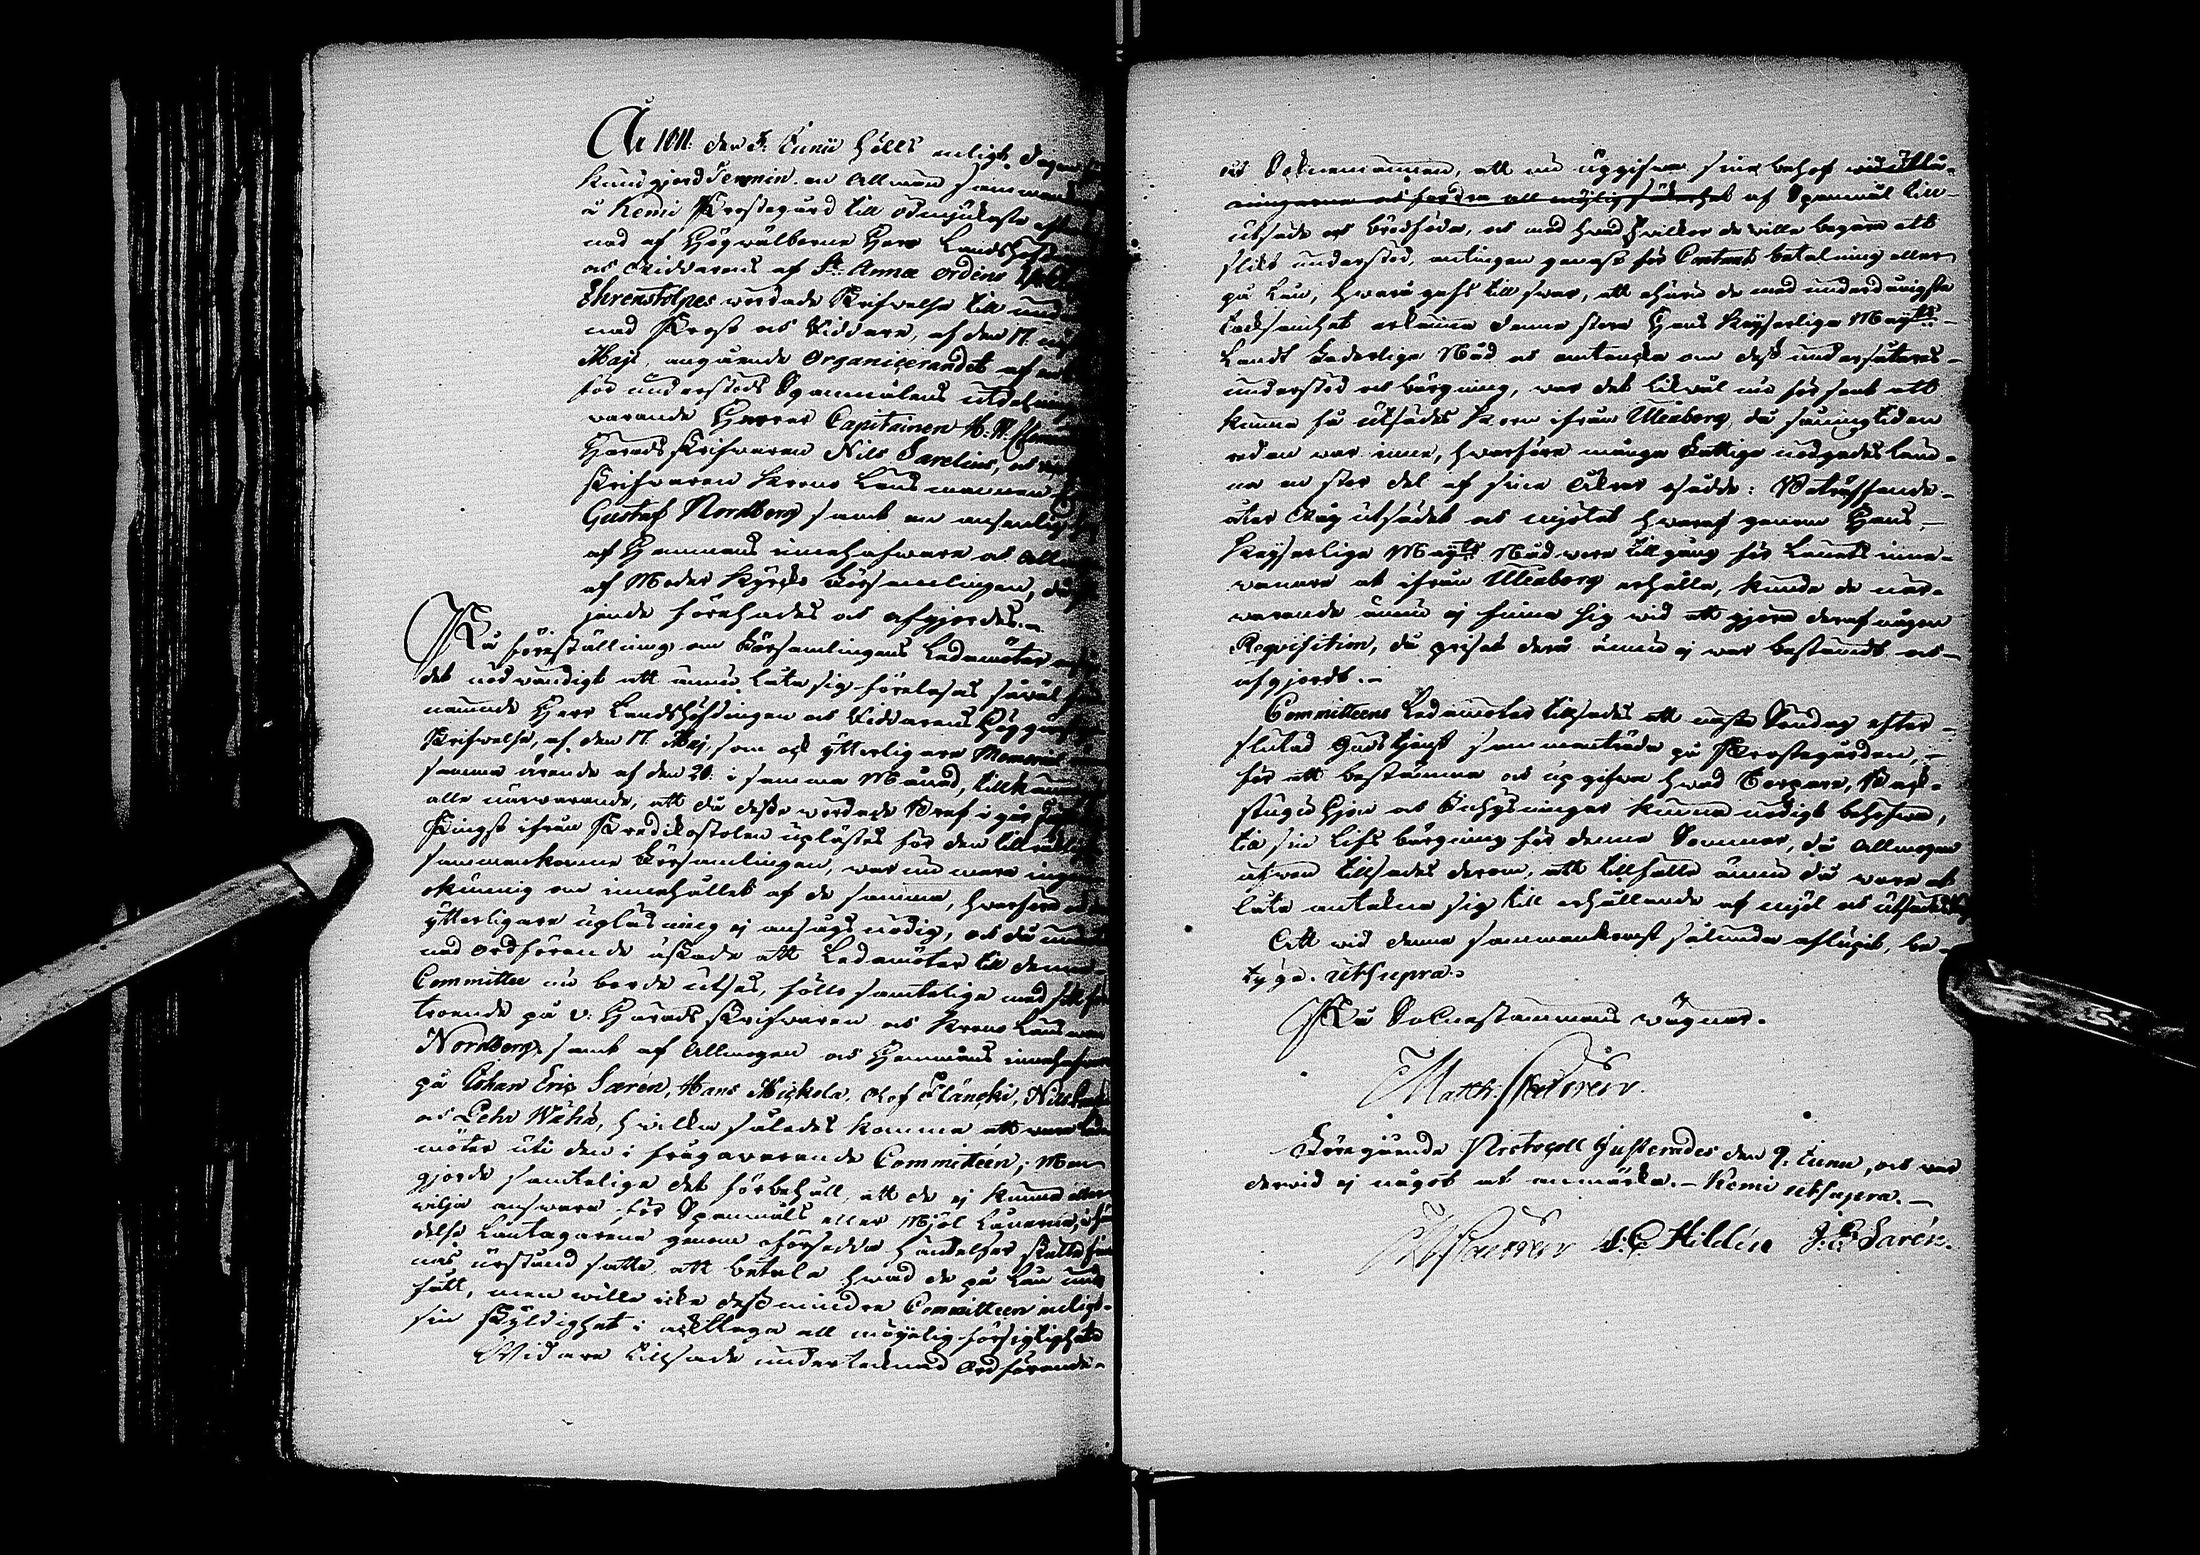 År 1811. den 3. Junii hölls enligt dagen
kundgjord Termin en Allmän samman
å Kemi Prostegård till ödmjukaste
nad af Högwälborne Herr Landshöfd
och Riddarens af S:t Annæ Ordens
Ehrenstolpes wördade Skrifwelse till und
nad Prost och Riddare, af den 17. 
Maji, angående Organicerandet af
för understöds Spannmålens utdelning
warande Herrar Capitainen H. W.
Härads skrifwaren Nils Sarelius, och
skrifwaren Krono Länsmannen
Gustaf Nordberg samt en ansenlig
af Hemmans innehafware och All
af Moder Kyrko Församlingen, då
jande förehades och afgjordes.
På föreställning om Församlingens Ledamöter
det nödwändigt att ännu låta sig föreläsas såwäl
nämnde Herr Landshöfdingen och Riddarens Höggunstige
Skrifwelse, af den 17. Maj, som ock ytterligare Memorial
samma ärende af den 20. i samma Månad,
alle närwarande, att då desse wördade Bref i går
Pingst ifrån Predikostolen uplästes för den talrikt
sammankomne Församlingen, war nu mera ingen
okunnig om innehållet af de samma, hwarföre
ytterligare upläsning ej ansågs nödig, och då
nad Ordförande äskade att Ledamöter till denna
Committee nu borde utses, föllo samtelige med sitt för
troende på v. Härads skrifwaren och Krono Länsman
Nordberg, samt af Allmogen och Hemmans innehafware
på Johan Eric Sarén, Hans Mickola, Olof Jlänski, Nils
och Pehr Wähä, hwilka således komma att wara Leda
möter uti den i fråga warande Committéen; Men
gjorde samtelige det förbehåll, att de ej kunna eller
wilja answara för Spannmåls eller Mjöl Lånerne, i hän
delse Låntagarena genom oförsedda händelser skulle
nas urstånd satte att betala hwad de på Lån und
fått, men wille icke dess mindre Committéen enligt
sin skyldighet i akttaga all möjelig försigtighet.
Widare tillsade undertecknad Ordförande
och Socknemännen, att nu uppgifwa sine behof wid Ittu-
ningarna och fordra all möjlig säkerhet af Spannmål till
utsäde och brödföda, och med hwad willkor de wille begära ett
slikt understöd, antingen genast för Contant betalning eller
på Lån, hwarå gafs till swar, att ehuru de med underdånigste
tacksamhet erkänna denna store Hans Keyserlige May:ts
Landt Faderlige Nåd och omtanka om dess undersåtares
understöd och bärgning, war det likwäl nu för sent att
kunna få utsädes Korn ifrån Uleåborg, då såningstiden
redan war inne, hwarföre många Fattige nödgades lem-
na en stor del af sine Åkrar osådde: Beträffande
åter Råg utsädet och mjölet hwaraf genom Hans
Keyserlige May:ts Nåd wore tillgång för Länets inne-
wånare at ifrån Uleåborg erhålla, kunde de när-
warande ännu ej finna sig wid att gjöra deraf någon
Requisition, då priset derå ännu ej war bestämdt och
afgjordt.
Committéens Ledamöter tillsades att nästa Söndag efter
slutad Gudstjenst sammanträda på Prostegården,
för att bestämma och upgifwa hwad Torpare, Back-
stugu Hjon och Inhysningar kunna nödigt behöfwa,
till sin Lifs bärgning för denna Sommar, då Allmogen
äfwen tillsades derom, att tillfälle ännu då wore at
låta anteckna sig till erhållande af mjöl och utsädes Råg
Att wid denna sammankomst sålunda aflupit, be-
tyga. Ut supra.
På Socknestämmans wägnar.
Matth. Castrén.
Föregående Protocoll justerades den 9. Junii, och war
derwid ej något at anmärka. Kemi ut supra.
M Castrén J. C. Hildén J. E. Sarén.